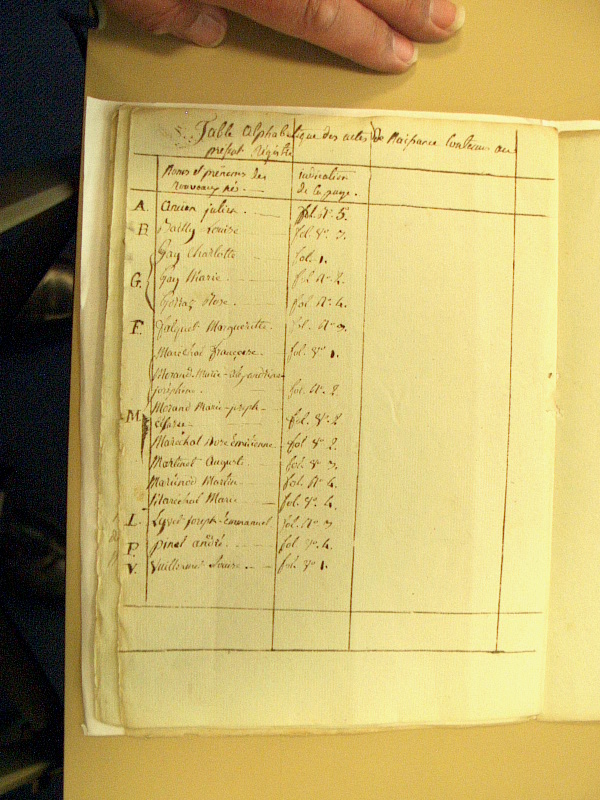 Table alphabetique des actes de Naissance Contenus au
présent Régistre
Noms et prénoms des
nouveaux nés.
indication
de la page.
A. Ancien julien. fol. Ro. 5.
B. Bailly Louise fol. Vo. 3.
Gay Charlotte fol. 1.
G. Gay Marie. fol. Ro. 2.
Rose. fol. Ro. 4.
F. falquet Margueritte. fol. Ro. 3.
Maréchal françoise. fol. Vo. 1.
Morand Marie-alexandrine
joséphine. fol. Ro. 2.
Morand Marie-joseph-
M. fol. Vo. 2
Maréchal Rose Emérienne fol. Vo. 2.
Martinet Auguste fol. Vo. 3.
Martin fol. Ro. 4.
Maréchal Marie fol. Vo. 4.
L. joseph-Emmanuel fol. Ro. 3
P. pinet andré. fol. Vo. 4.
V. Vuillermet Louise. fol. Vo. 1.